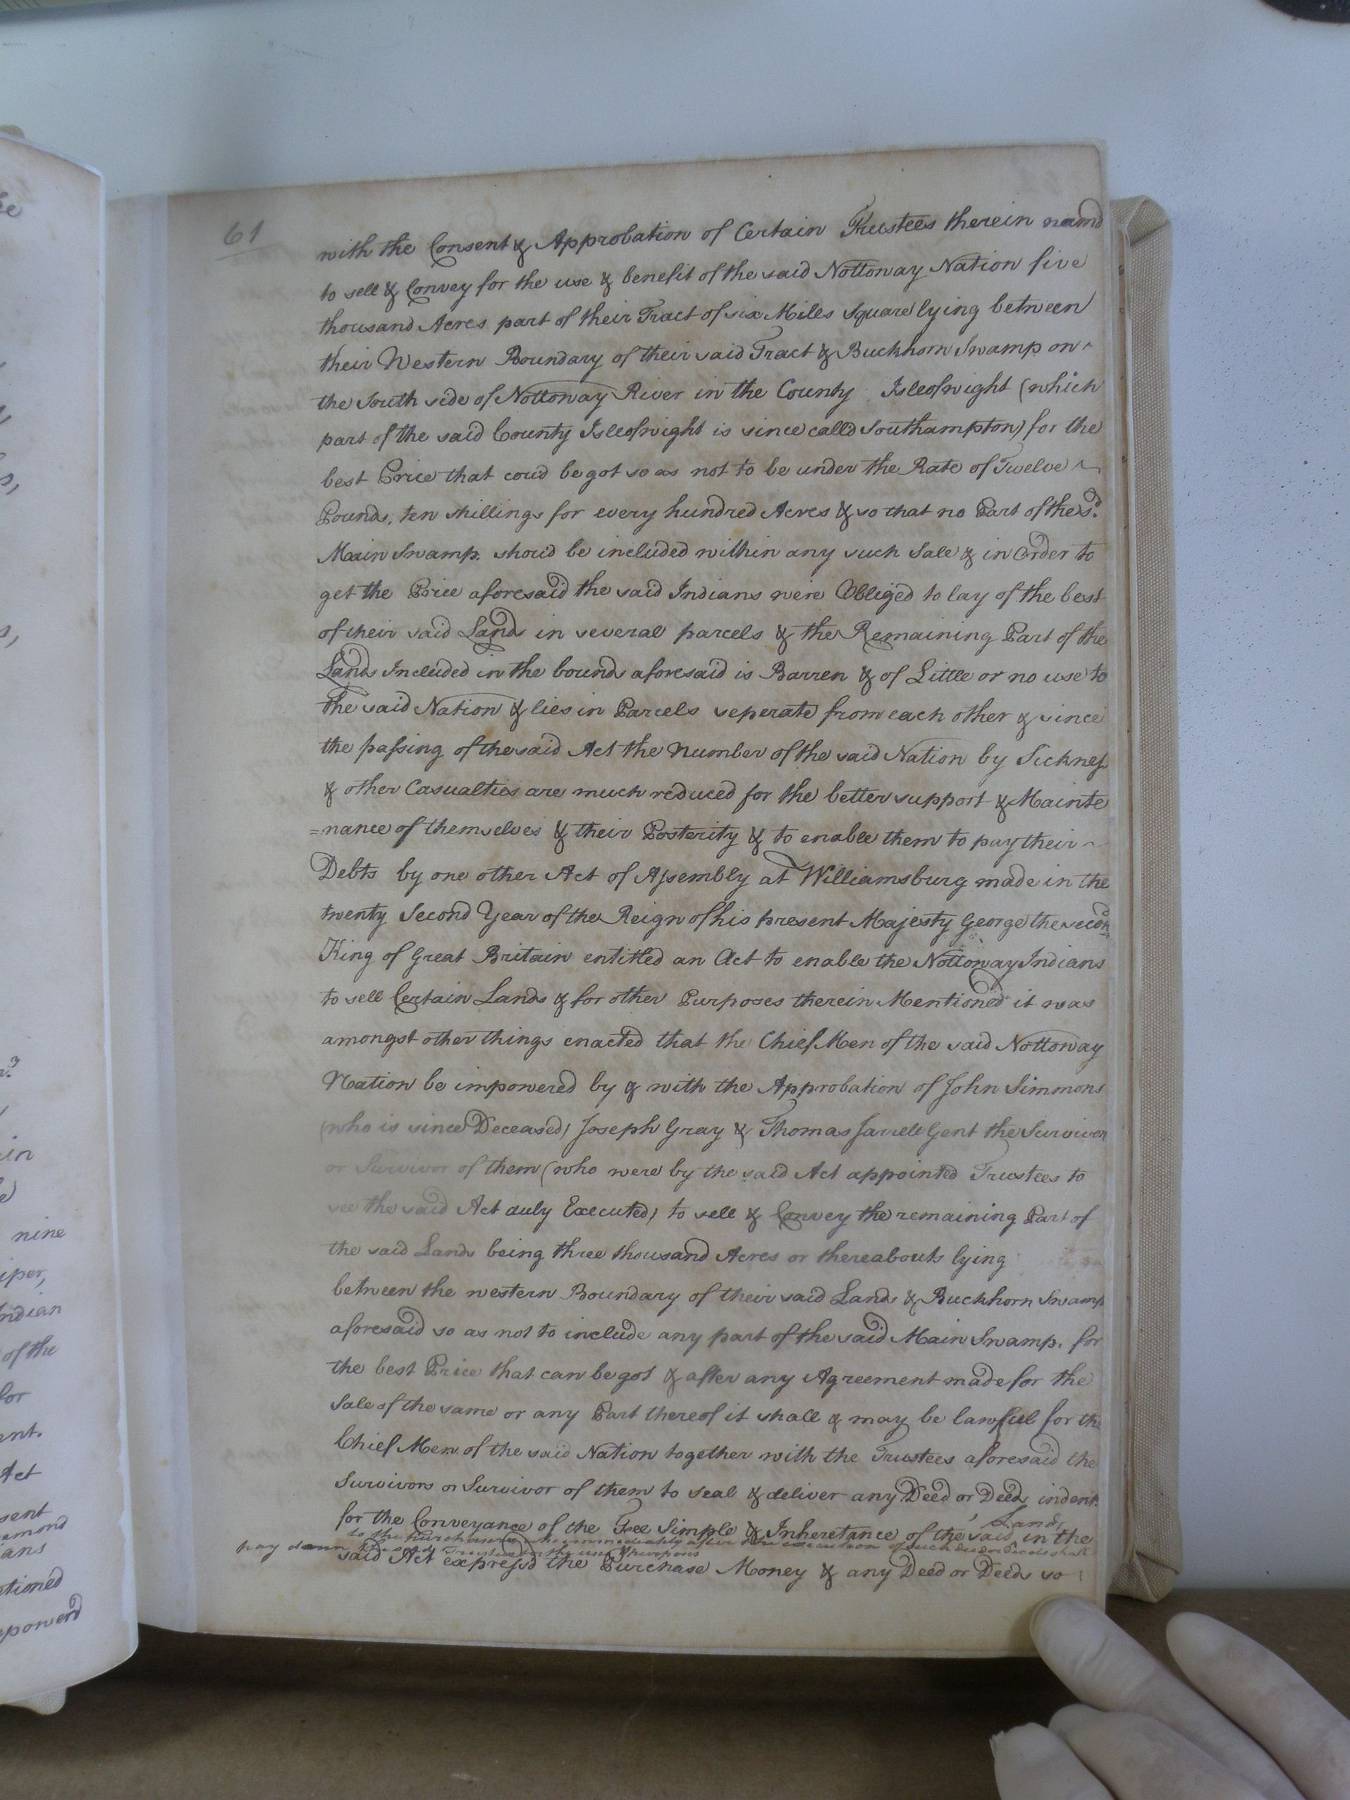 61
with the Consent & Approbation of Certain Trustees therein namd
to sell & Convey for the use & benefit of the said Nottoway Nation five
thousand Acres part of their Tract of six Miles Square lying between
their Western Boundary of their said Tract & Buckhorn Swamp on
the South side of Nottoway River in the County Isleofwight (which
part of the said County Isleofwight is since calld Southampton) for the
best Price that coud be got so as not to be under the Rate of Twelve
Pounds, ten shillings for every hundred Acres & so that no Part of the sd.
Main Swamp. shoud be included within any such Sale & in Order to
get the Price aforesaid the said Indians were Obliged to lay of the best
of their said Land in several parcels & the Remaining Part of the
Lands Included in the bounds aforesaid is Barren & of Little or no use to
the said Nation & lies in Parcels seperate from each other & since
the passing of the said Act the Number of the said Nation by Sickness
& other Casualties are much reduced for the better support & Mainte
=nance of themselves & their Posterity & to enable them to pay their
Debts by one other Act of Assembly at Williamsburg made in the
twenty Second Year of the Reign of his present Majesty George the second
King of Great Britain entitled an Act to enable the Nottoway Indians
to sell Certain Lands & for other Purposes therein Mentioned it was
amongst other things enacted that the Chief Men of the said Nottoway
Nation be impowered by & with the Approbation of John Simmons
(who is since Deceased) Joseph Gray & Thomas Jarrell Gent the Survivors
or Survivor of them (who were by the said Act appointed Trustees to
see the said Act duly Executed) to sell & Convey the remaining Part of
the said Lands being three thousand Acres or thereabouts lying
between the western Boundary of their said Lands & Buckhorn Swamp
aforesaid so as not to include any part of the said Main Swamp. for
the best Price that can be got & after any Agreement made for the
Sale of the same or any Part thereof it shall & may be lawful for the
Chief Men of the said Nation together with the Trustees aforesaid the
Survivors or Survivor of them to seal & deliver any Deed or Deeds indent.
for the Conveyance of the Fee Simple & Inheritance of the said Lands in the
to the Purchasers who immediately after the execution of such deed or deeds shall
pay down to the said Trustees in the
said Act expressd the Purchase Money & any Deed or Deeds so
nine
iper,
Indian
of the
for
ent.
Act
sent
emond
ians
tioned
powerd